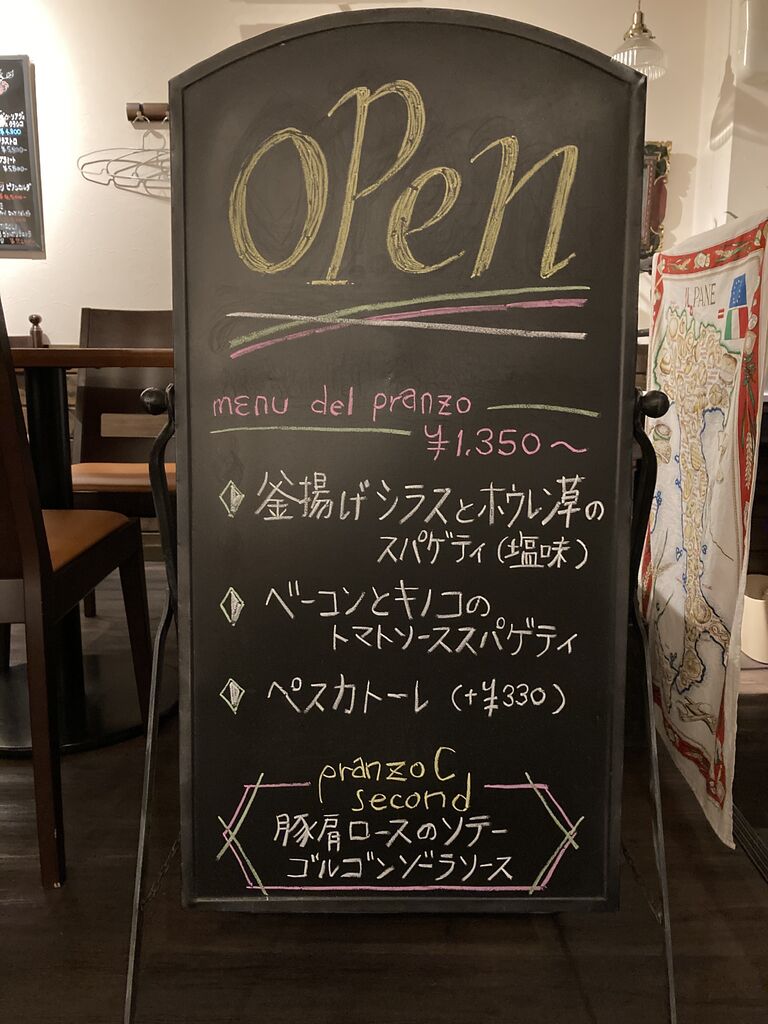 OPen
menu del pranzo
¥1.350～
釜揚げシラスとホウレン草の
スパゲティ(塩味)
ベーコンとキノコの
トマトソーススパゲティ
ペスカトーレ (+¥330)
pranzo C
second
豚肩ロースのソテー
ゴルゴンゾーラソース
IL PANE